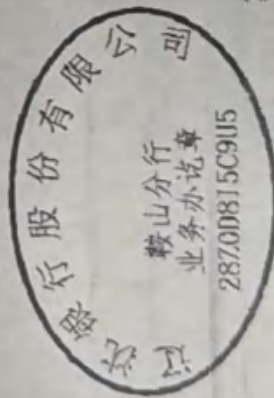 辽沈银行股份有限公司
鞍山分行
业务办讫章
2870D815C9U5